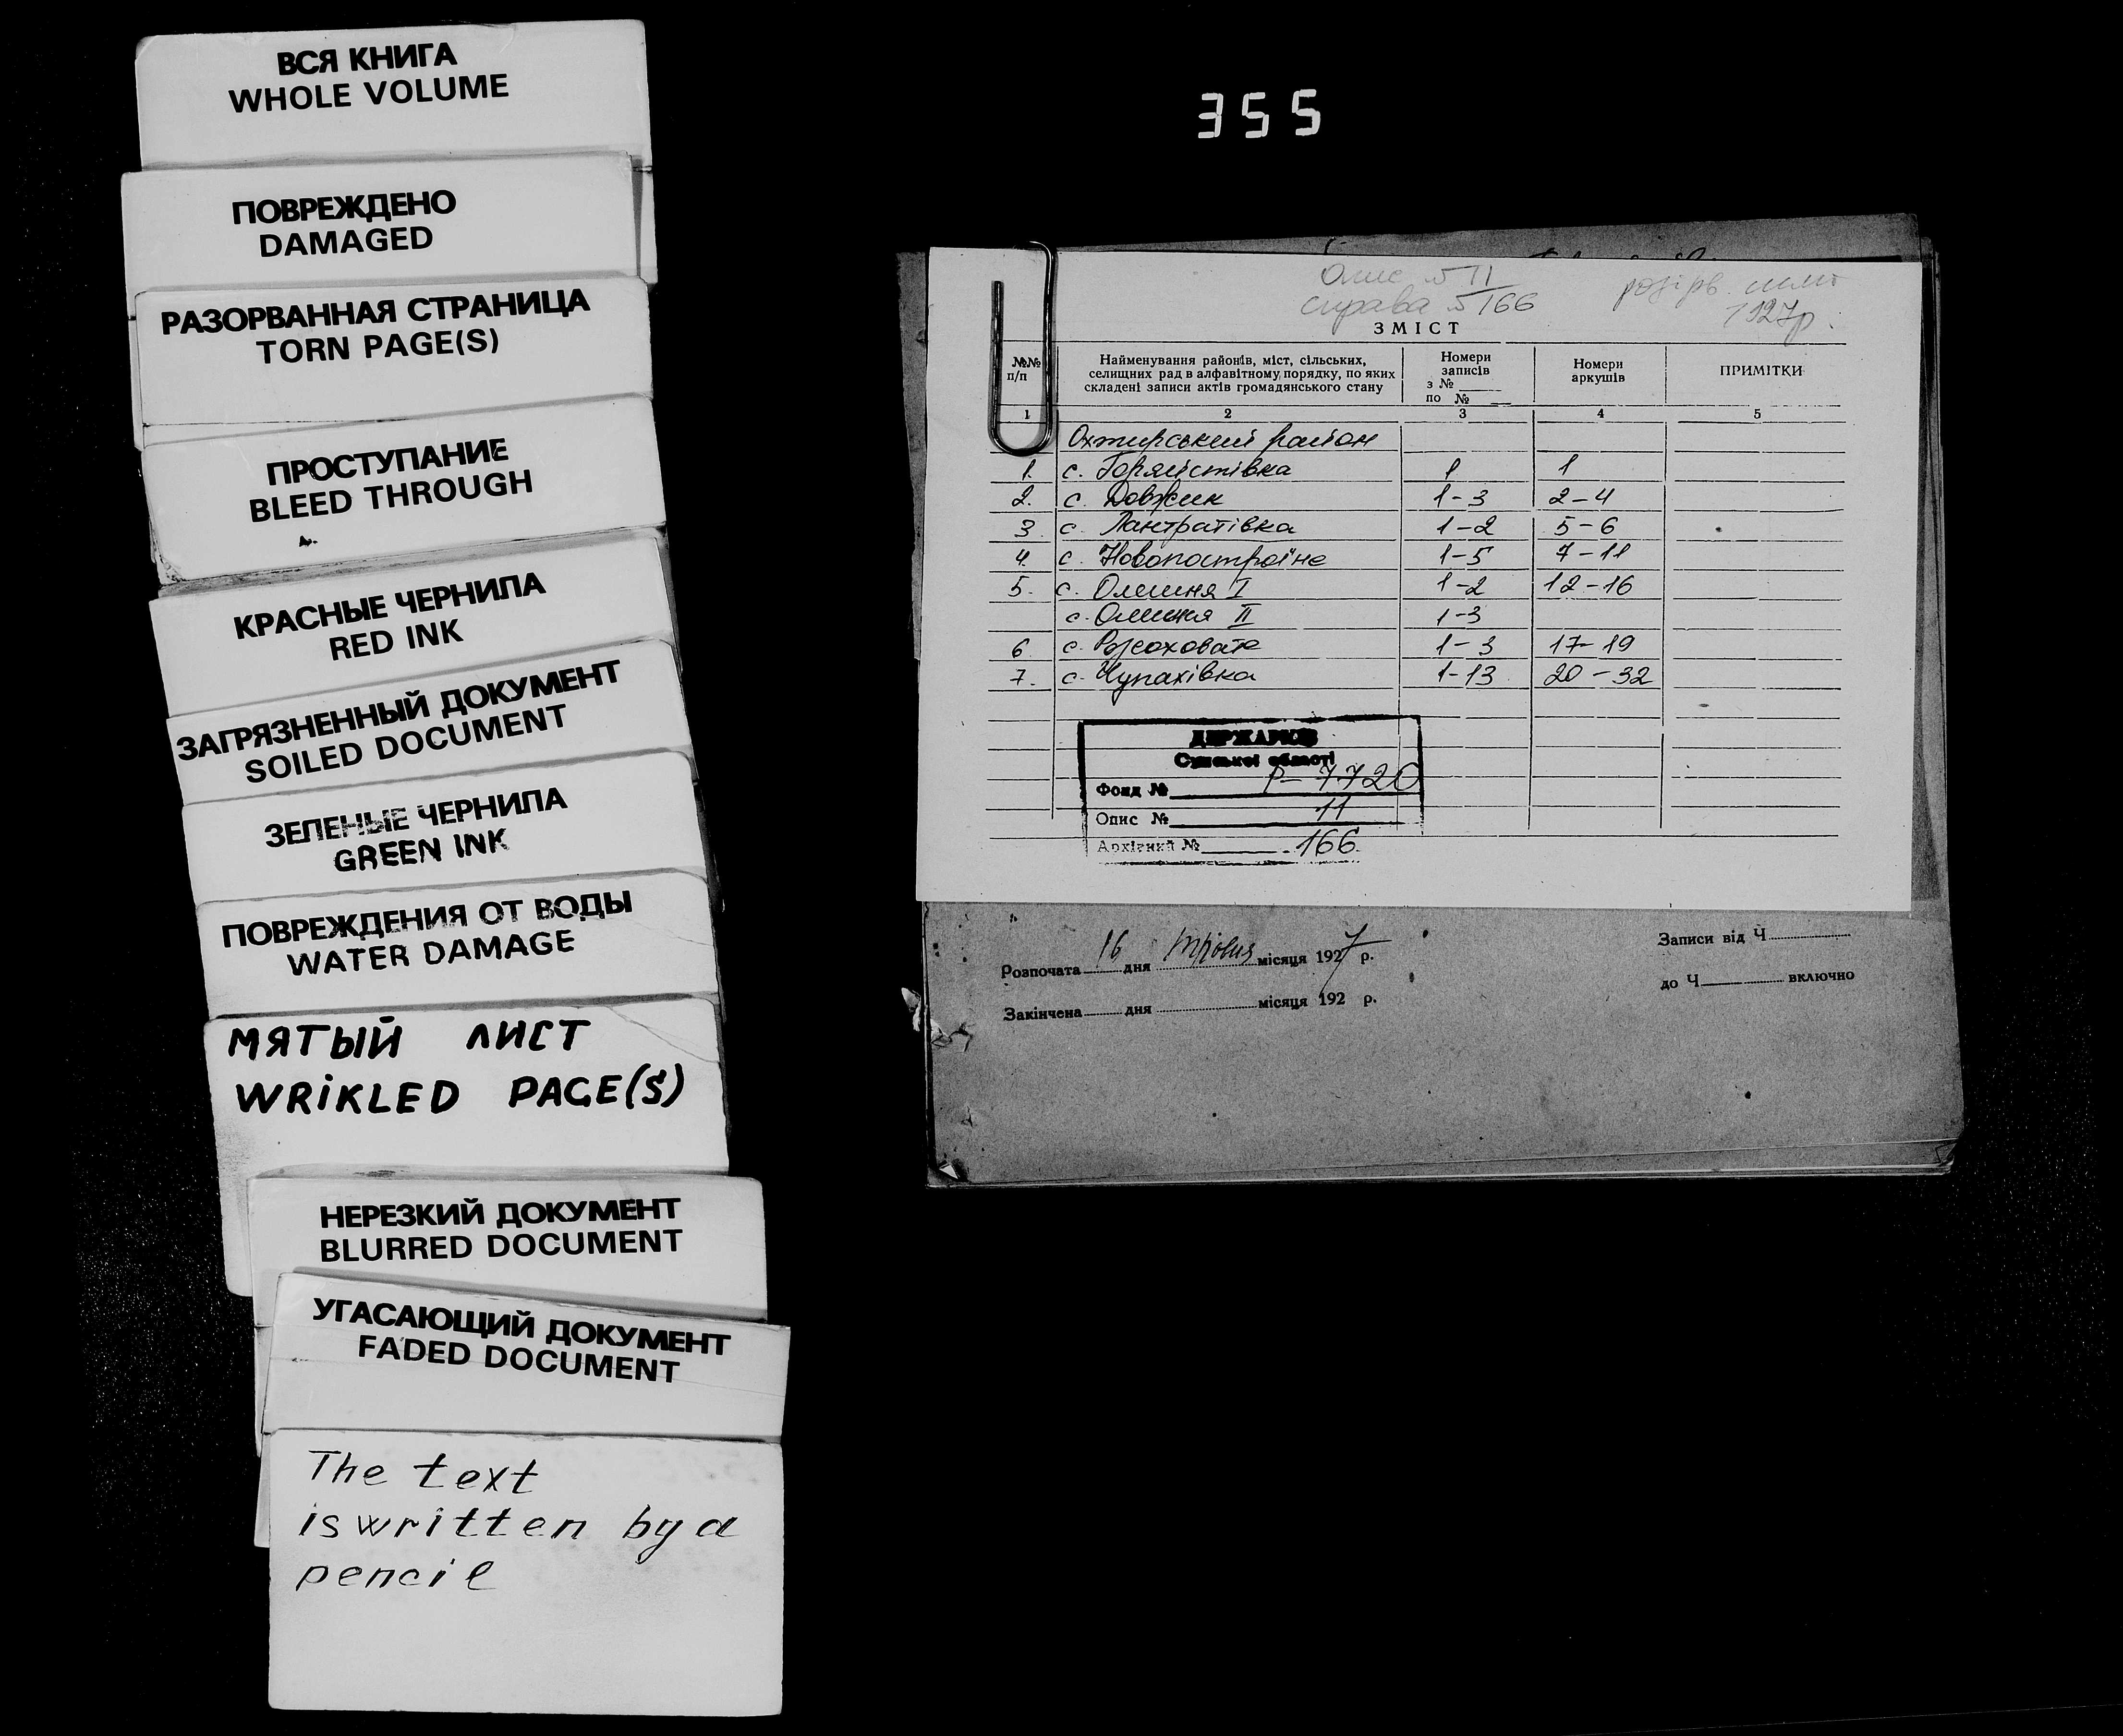 ВСЯ КНИГА
WHOLE VOLUME
ПОВРЕЖДЕНО
DAMAGED
РАЗОРВАННАЯ СТРАНИЦА
TORN PAGE(S)
ПРОСТУПАНИЕ
BLEED THROUGH
КРАСНЫЕ ЧЕРНИЛА
RED INK
ЗАГРЯЗНЕННЫЙ ДОКУМЕНТ
SOILED DOCUMENT
ЗЕЛЕНЫЕ ЧЕРНИЛА
GREEN INK
ПОВРЕЖДЕНИЯ ОТ ВОДЫ
WATER DAMAGE
МЯТЫЙ ЛИСТ
WRIKLED PAGE(S)
НЕРЕЗКИЙ ДОКУМЕНТ
BLURRED DOCUMENT
УГАСАЮЩИЙ ДОКУМЕНТ
FADED DOCUMENT
The text
is written by a
pencil
355
Опис 11
справа 166
1927р.
ЗМІСТ
№№ п/п Найменування районів, міст, сільських, селищних рад в алфавітному порядку, по яких складені записи актів громадянського стану Номери записів з № по № Номери аркушів ПРИМІТКИ
1 2 3 4 5
Охтирський район
1. с. 1 1
2. с. Довжик 1-3 2-4
3. с. Лантратівка 1-2 5-6
4. с. Новопостроїне 1-5 7-11
5. с. Олешня I 1-2 12-16
с. Олешня II 1-3
6 с. 1-3 17-19
7. с. Чупахівка 1-13 20-32
ДЕРЖАРХІВ
Сумської області
Фонд № Р-7720
Опис № 11
Архівний № 166
Розпочата 16 дня травня місяця 1927 р.
Закінчена дня місяця 192 р.
Записи від Ч
до Ч включно